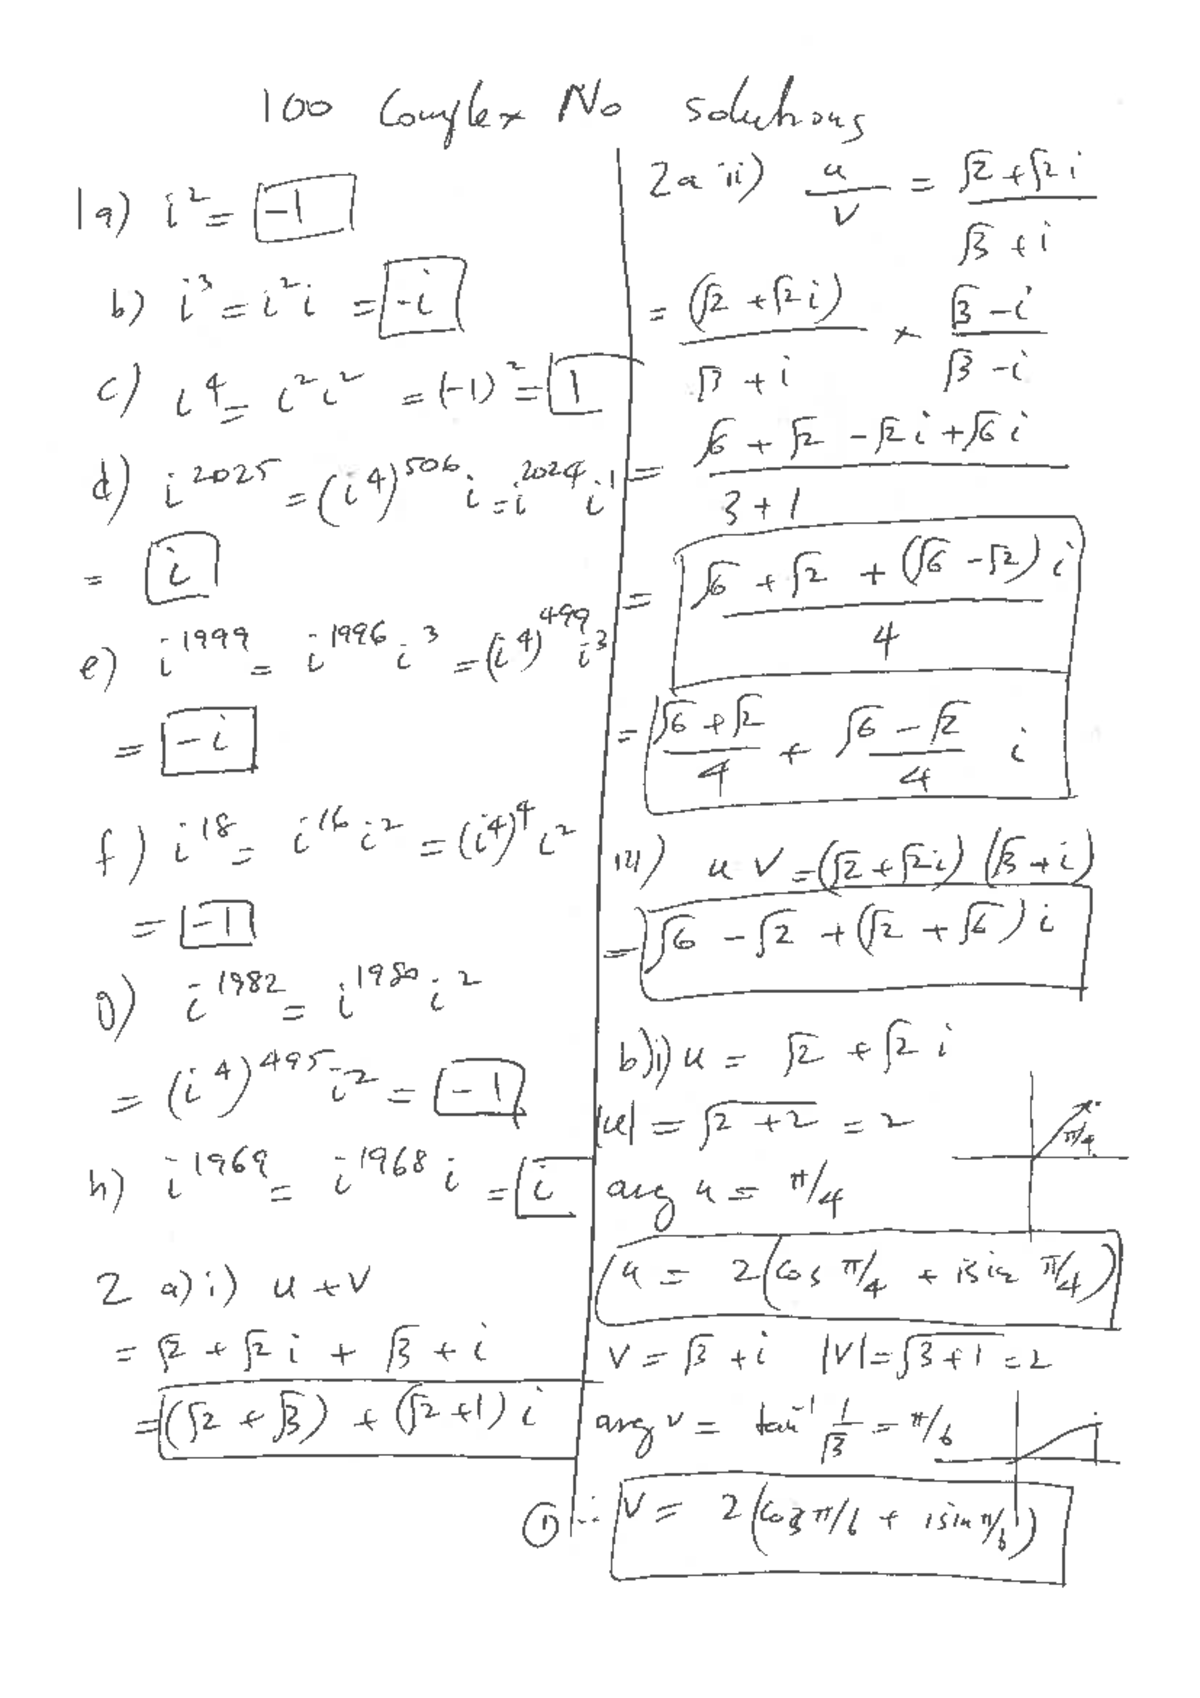 100 Complex No solutions
1a) i² = -1
b) i³ = i²i = -i
c) i⁴ = i²i² = (-1)² = 1
d) i²⁰²⁵ = (i⁴)⁵⁰⁶ i = i²⁰²⁴ i¹
= i
e) i¹⁹⁹⁹ = i¹⁹⁹⁶ i³ = (i⁴)⁴⁹⁹ i³
= -i
f) i¹⁸ = i¹⁶ i² = (i⁴)⁴ i²
= -1
g) i¹⁹⁸² = i¹⁹⁸⁰ i²
= (i⁴)⁴⁹⁵ i² = -1
h) i¹⁹⁶⁹ = i¹⁹⁶⁸ i = i
2 a) i) u + v
= √2 + √2 i + √3 + i
= (√2 + √3) + (√2 + 1) i
2a ii) u/v = (√2 + √2 i)/(√3 + i)
= (√2 + √2 i)/(√3 + i) × (√3 - i)/(√3 - i)
= (√6 + √2 - √2 i + √6 i)/(3 + 1)
= (√6 + √2 + (√6 - √2) i)/4
= (√6 + √2)/4 + (√6 - √2)/4 i
iii) u v = (√2 + √2 i) (√3 + i)
= √6 - √2 + (√2 + √6) i
b) i) u = √2 + √2 i
|u| = √(2 + 2) = 2
π/4
arg u = π/4
u = 2 (cos π/4 + i sin π/4)
v = √3 + i |v| = √(3 + 1) = 2
arg v = tan⁻¹ 1/√3 = π/6
① ∴ v = 2 (cos π/6 + i sin π/6)